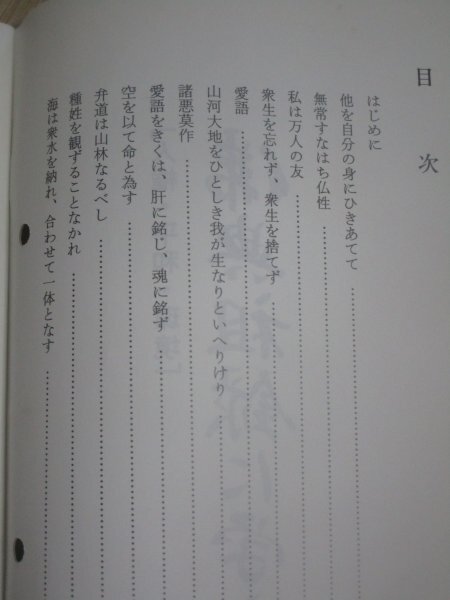 目次
はじめに
他を自分の身にひきあてて
無常すなはち仏性
私は万人の友
衆生を忘れず、衆生を捨てず
愛語
山河大地をひとしき我が生なりといへりけり
諸悪莫作
愛語をきくは、肝に銘じ、魂に銘ず
空を以て命と為す
弁道は山林なるべし
種姓を観ずることなかれ
海は衆水を納れ、合わせて一体となす